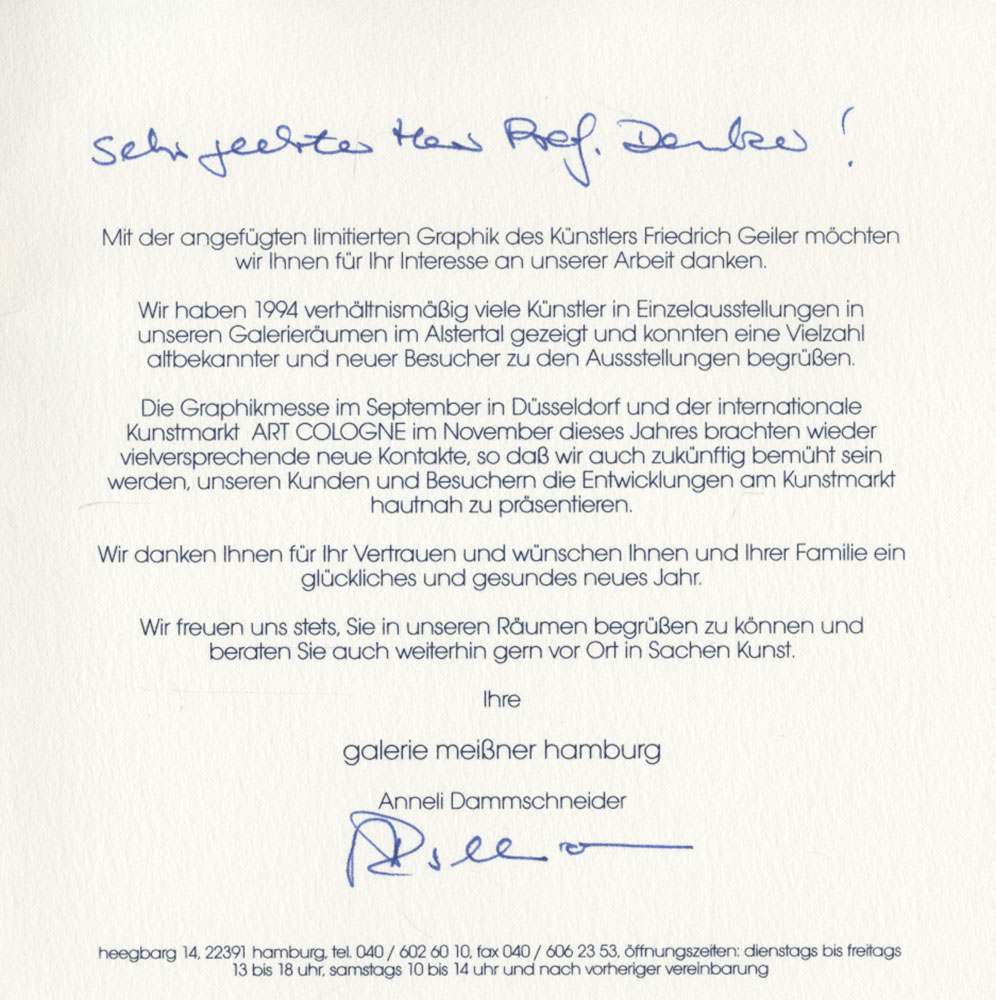 Sehr geehrter Herr Prof. Denker!
Mit der angefügten limitierten Graphik des Künstlers Friedrich Geiler möchten
wir Ihnen für Ihr Interesse an unserer Arbeit danken.
Wir haben 1994 verhältnismäßig viele Künstler in Einzelausstellungen in
unseren Galerieräumen im Alstertal gezeigt und konnten eine Vielzahl
altbekannter und neuer Besucher zu den Aussstellungen begrüßen.
Die Graphikmesse im September in Düsseldorf und der internationale
Kunstmarkt ART COLOGNE im November dieses Jahres brachten wieder
vielversprechende neue Kontakte, so daß wir auch zukünftig bemüht sein
werden, unseren Kunden und Besuchern die Entwicklungen am Kunstmarkt
hautnah zu präsentieren.
Wir danken Ihnen für Ihr Vertrauen und wünschen Ihnen und Ihrer Familie ein
glückliches und gesundes neues Jahr.
Wir freuen uns stets, Sie in unseren Räumen begrüßen zu können und
beraten Sie auch weiterhin gern vor Ort in Sachen Kunst.
Ihre
galerie meißner hamburg
Anneli Dammschneider
heegbarg 14, 22391 hamburg, tel. 040 / 602 60 10, fax 040 / 606 23 53, öffnungszeiten: dienstags bis freitags
13 bis 18 uhr, samstags 10 bis 14 uhr und nach vorheriger vereinbarung